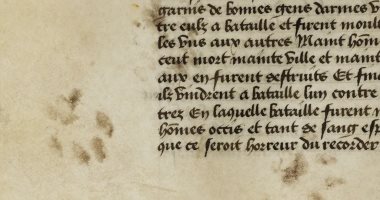 garnis de bonnes gens darmes v
tre eulz a bataille et furent moul
les vns aux autres Maint hom̄e
ceut mort mainte ville et maint
aux en furent destruits Et fin
ilz vindrent a bataille lun contre
trez En laquelle bataille furent
hom̄es occis et tant de sang esp
que ce seroit horreur du recorder